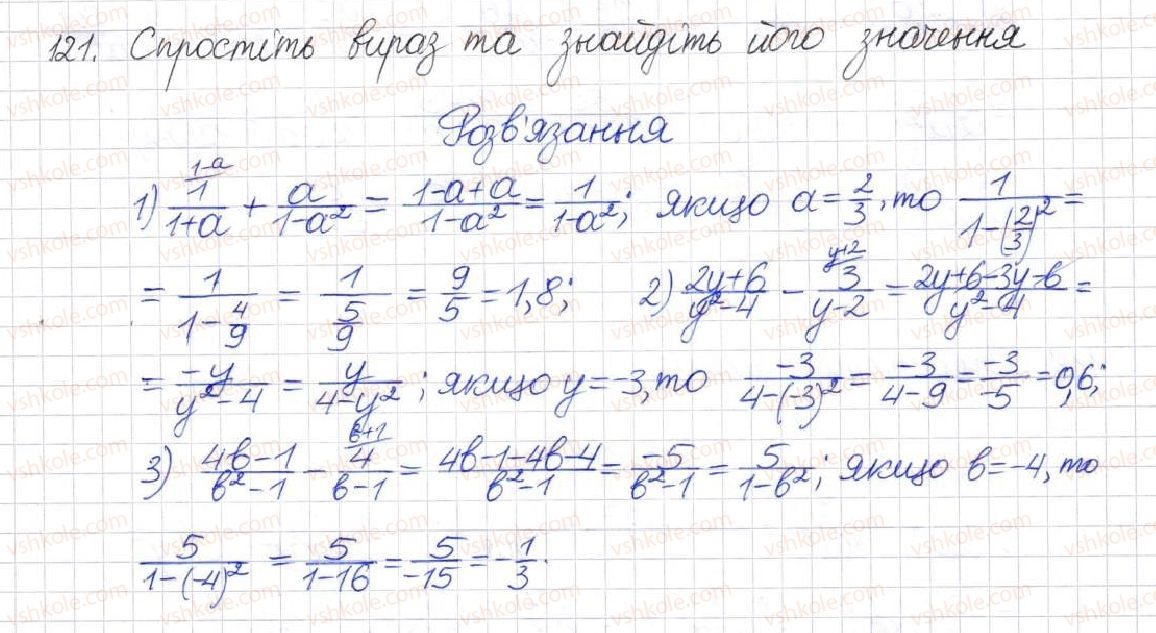 121. Спростіть вираз та знайдіть його значення
Розв'язання
1) 1/(1+a) ^(1-a) + a/(1-a²) = (1-a+a)/(1-a²) = 1/(1-a²); якщо a = 2/3, то 1/(1-(2/3)²) =
= 1/(1-4/9) = 1/(5/9) = 9/5 = 1,8; 2) (2y+6)/(y²-4) - 3/(y-2) ^(y+2) = (2y+6-3y-6)/(y²-4) =
= -y/(y²-4) = y/(4-y²); якщо y = -3, то -3/(4-(-3)²) = -3/(4-9) = -3/-5 = 0,6;
3) (4b-1)/(b²-1) - 4/(b-1) ^(b+1) = (4b-1-4b-4)/(b²-1) = -5/(b²-1) = 5/(1-b²); якщо b = -4, то
5/(1-(-4)²) = 5/(1-16) = 5/-15 = -1/3.